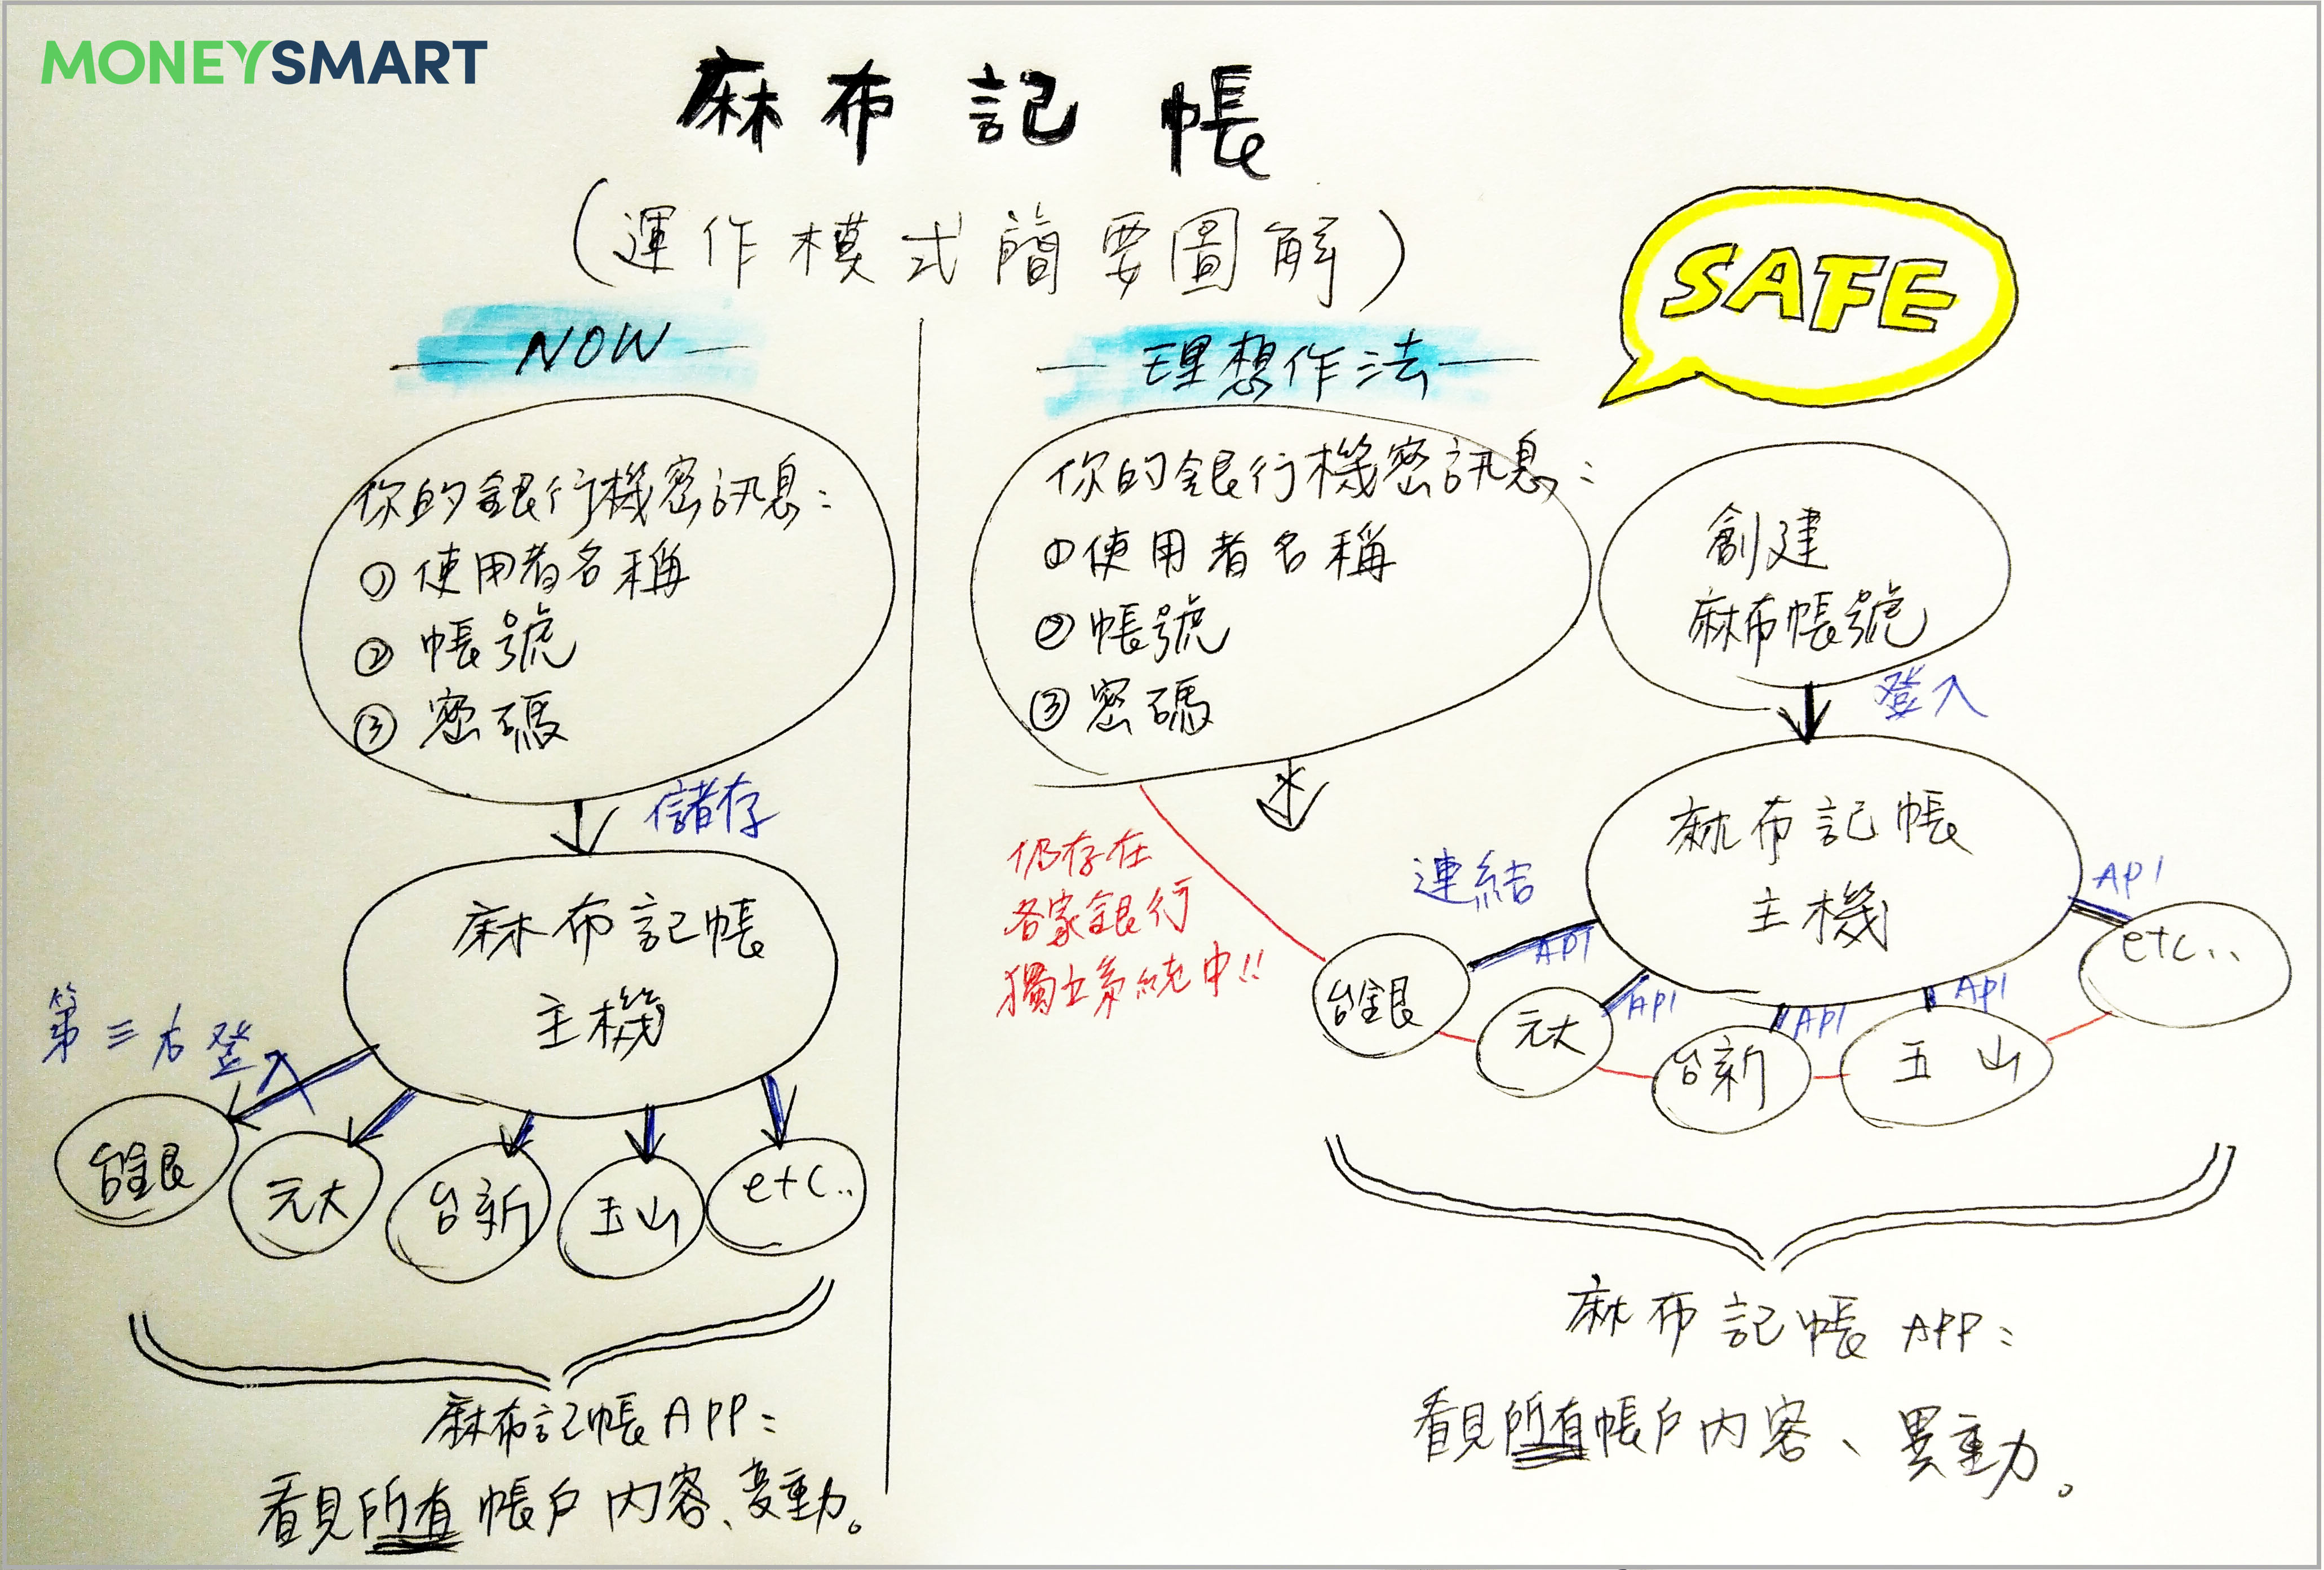 MONEYSMART
麻布記帳
(運作模式簡要圖解)
SAFE
NOW
你的銀行機密訊息:
① 使用者名稱
② 帳號
③ 密碼
儲存
麻布記帳
主機
第三方登入
台銀
元大
台新
玉山
etc..
麻布記帳APP:
看見所有帳戶內容、變動。
理想作法
你的銀行機密訊息:
① 使用者名稱
② 帳號
③ 密碼
仍存在
各家銀行
獨立系統中!!
創建
麻布帳號
登入
麻布記帳
主機
連結
API
API
API
API
API
台銀
元大
台新
玉山
etc..
麻布記帳APP:
看見所有帳戶內容、異動。